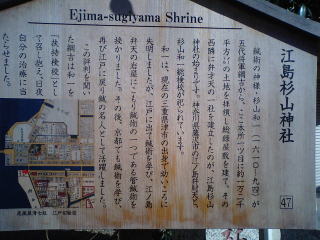 Ejima-sugiyama Shrine
江島杉山神社
鍼術の神様・杉山和一(一六一〇~九四)が
五代将軍綱吉から、ここ本所一ツ目に約一万二千
平方㍍の土地を拝領し総録屋敷を建て、その
西隣に弁才天の一社を建立したのが、江島杉山
神社の始まりです。神奈川県藤沢市の江ノ島弁財天と、
杉山和一総検校が祀られています。
和一は、現在の三重県津市の出身で幼いころに
失明しましたが、江戸に出て鍼術を学び、江ノ島
弁天の岩屋にこもり鍼術の一つである管鍼術を
授かりました。その後、京都でも鍼術を学び、
再び江戸に戻り鍼の名人として活躍しました。
この評判を聞い
た綱吉は和一を
「扶持検校」とし
て召し抱え、日夜
自分の治療に当
たらせました。
尾張屋清七板 江戸切絵図
47